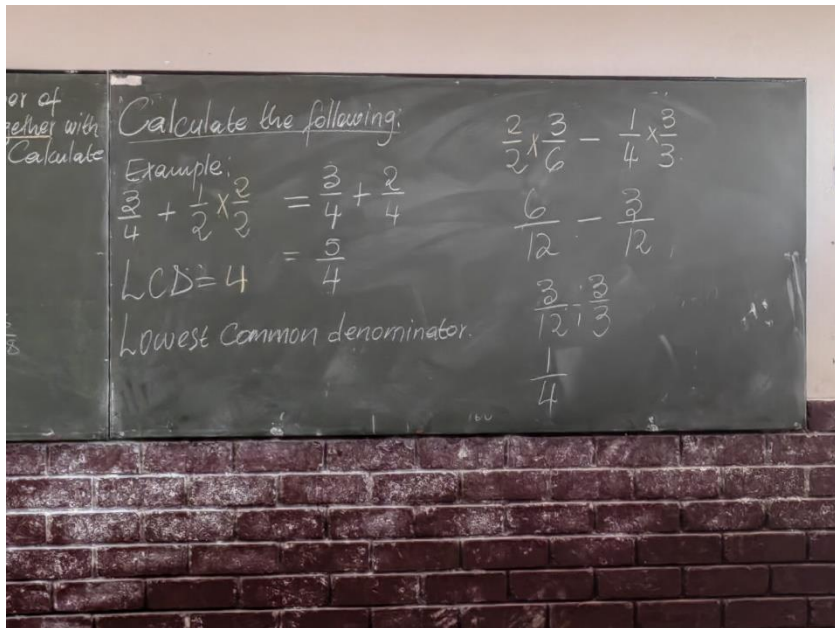 or of
gether with
Calculate
8
Calculate the following:
Example:
3/4 + 1/2 × 2/2 = 3/4 + 2/4
= 5/4
LCD = 4
Lowest Common denominator.
2/2 × 3/6 − 1/4 × 3/3
6/12 − 3/12
3/12 ÷ 3/3
1/4